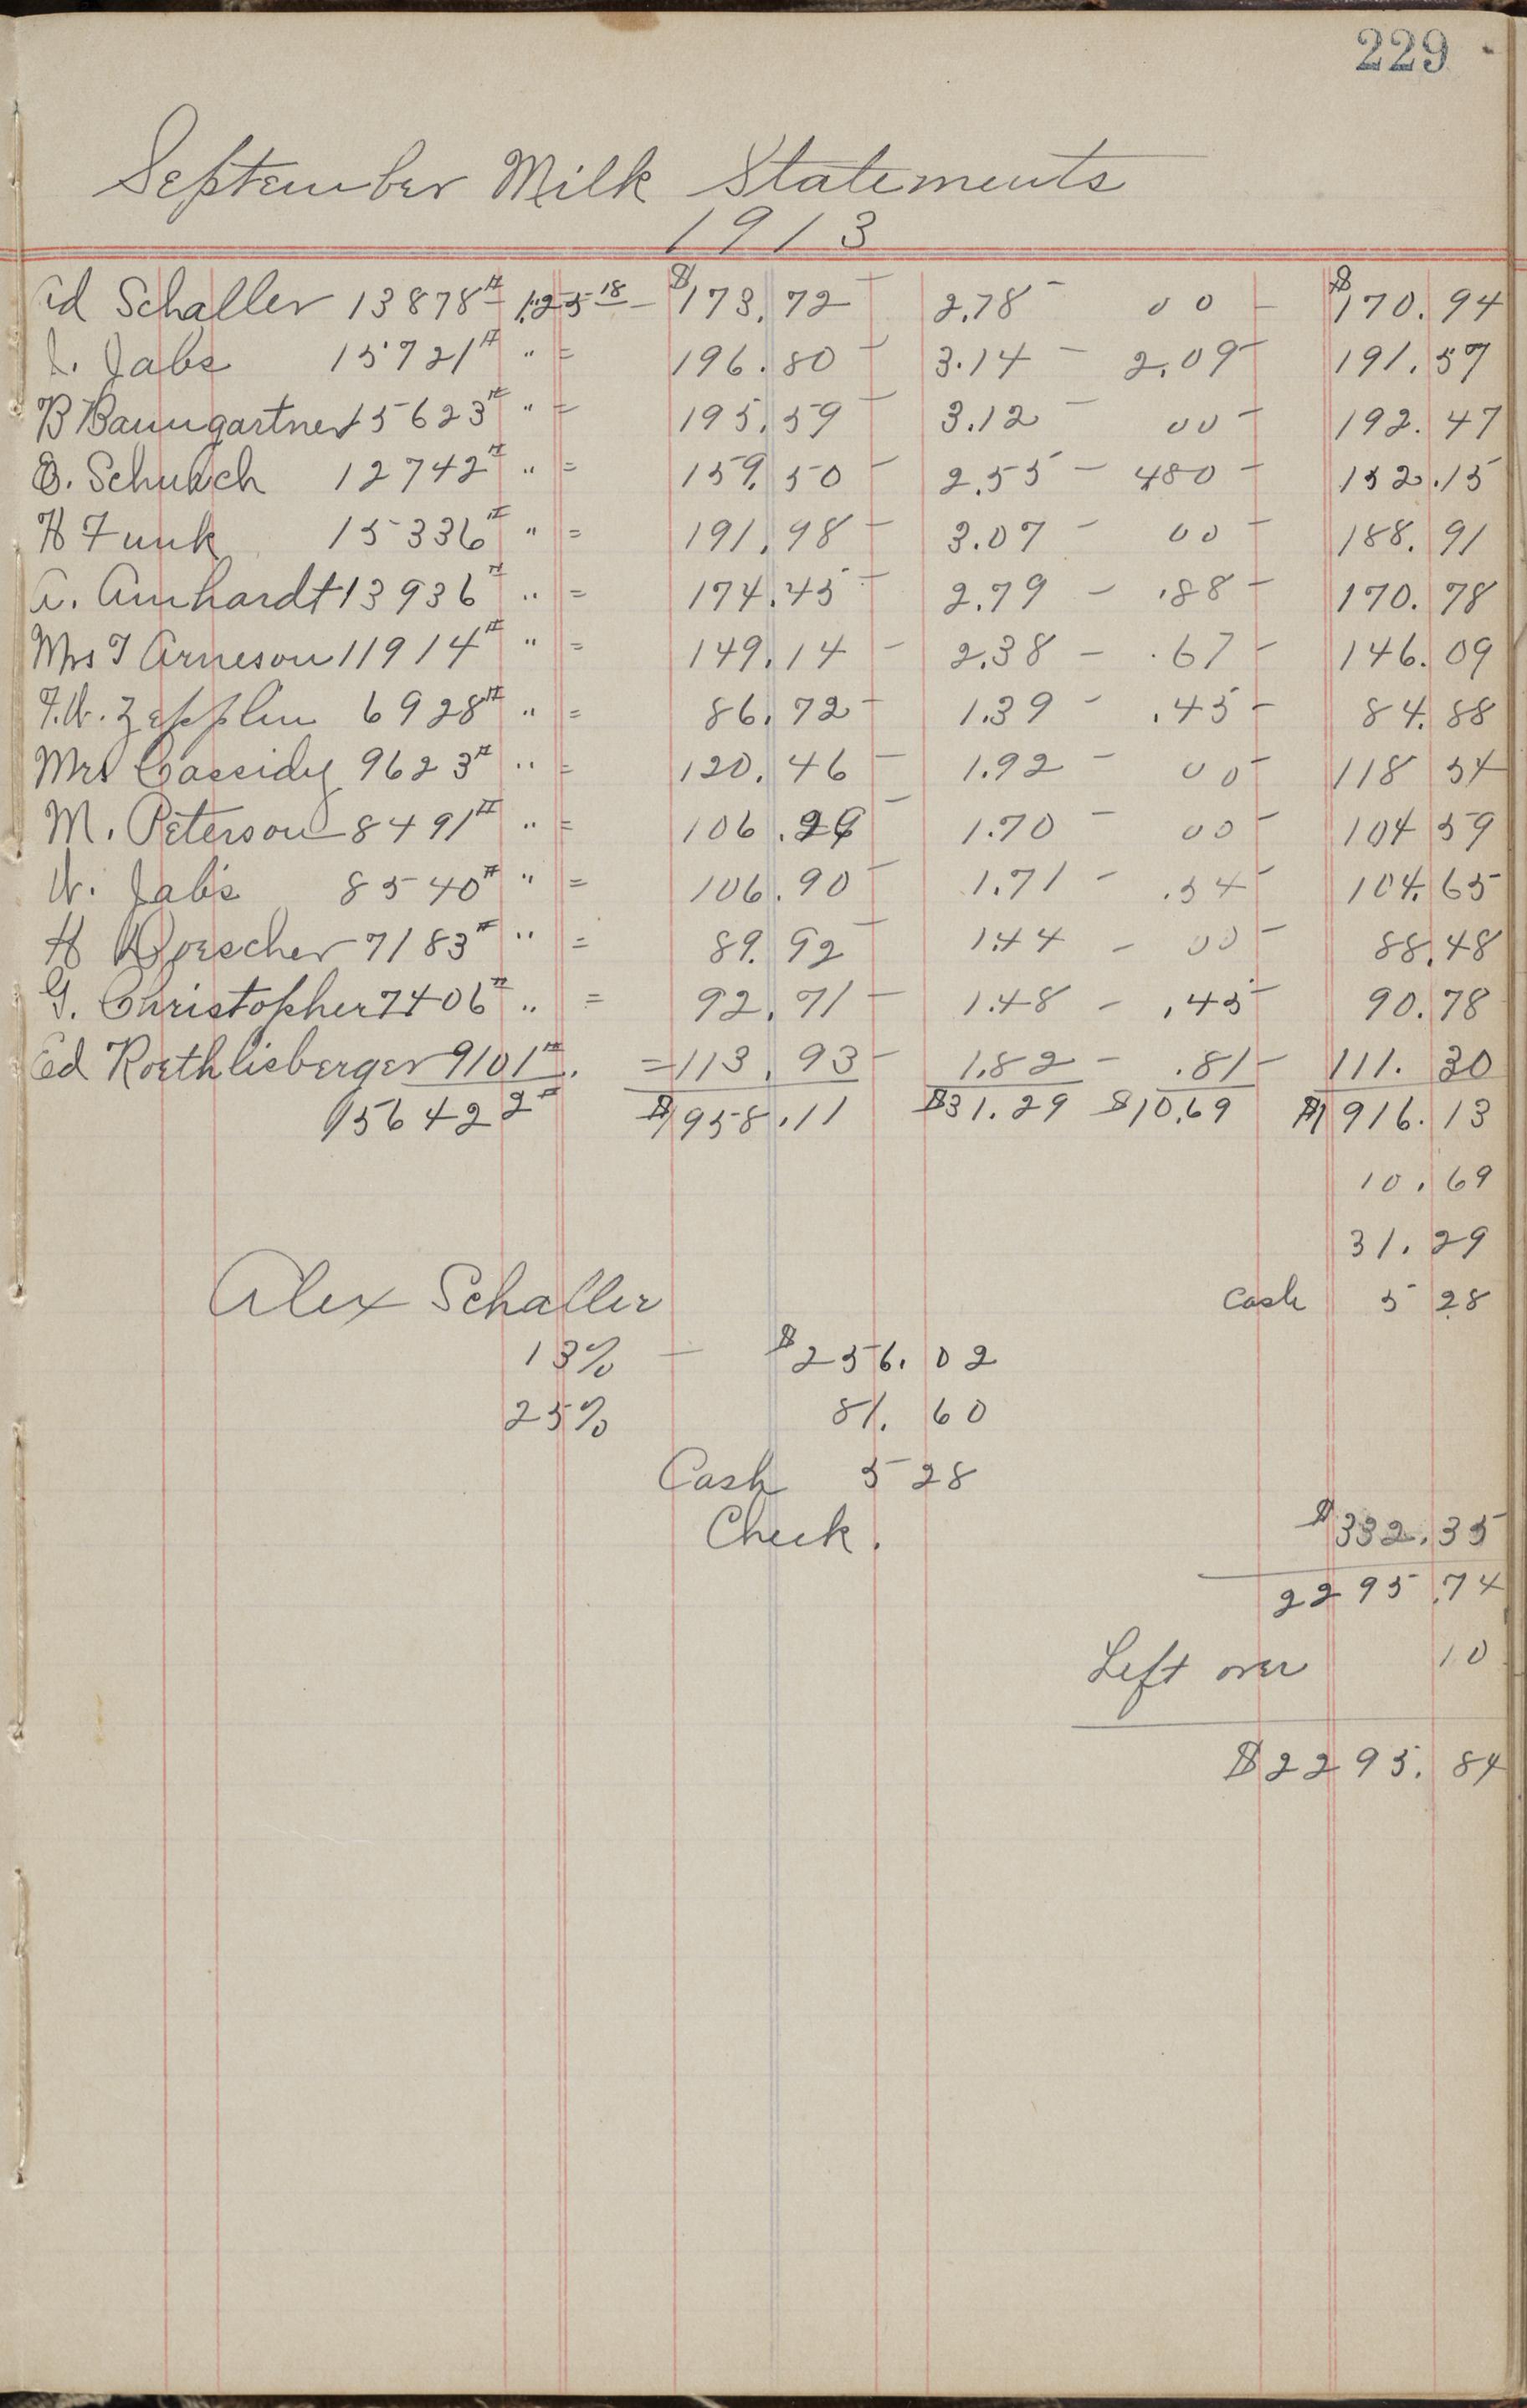 229
September Milk Statements
1913
Ed Schaller 13878# 1.25 18 - $173.72 - 2.78 - 00 - $170.94
J. Jabs 15721# " = 196.80 - 3.14 - 2.09 - 191.57
B Baumgartner 15623# " = 195.59 - 3.12 - 00 - 192.47
O. Schubch 12742# " = 159.50 - 2.55 - 480 - 152.15
H Funk 15336# " = 191.98 - 3.07 - 00 - 188.91
A. Amhardt 13936# " = 174.45 - 2.79 - .88 - 170.78
Mrs T Arneson 11914# " = 149.14 - 2.38 - .67 - 146.09
F.W. Zepplin 6928# " = 86.72 - 1.39 - .45 - 84.88
Mrs Cassidy 9623# " = 120.46 - 1.92 - 00 - 118 54
M. Peterson 8491# " = 106.29 - 1.70 - 00 - 104 59
W. Jabs 8540# " = 106.90 - 1.71 - .54 - 104.65
H Doescher 7183# " = 89.92 - 1.44 - 00 - 88.48
G. Christopher 7406# " = 92.71 - 1.48 - .45 - 90.78
Ed Roethlisberger 9101#. = 113.93 - 1.82 - .81 - 111.30
156422# $1958.11 $31.29 $10.69 $1916.13
10.69
31.29
Alex Schaller Cash 5 28
13% - $256.02
25% 81.60
Cash 5 28
Check. $332.35
2295.74
Left over 10
$2295.84